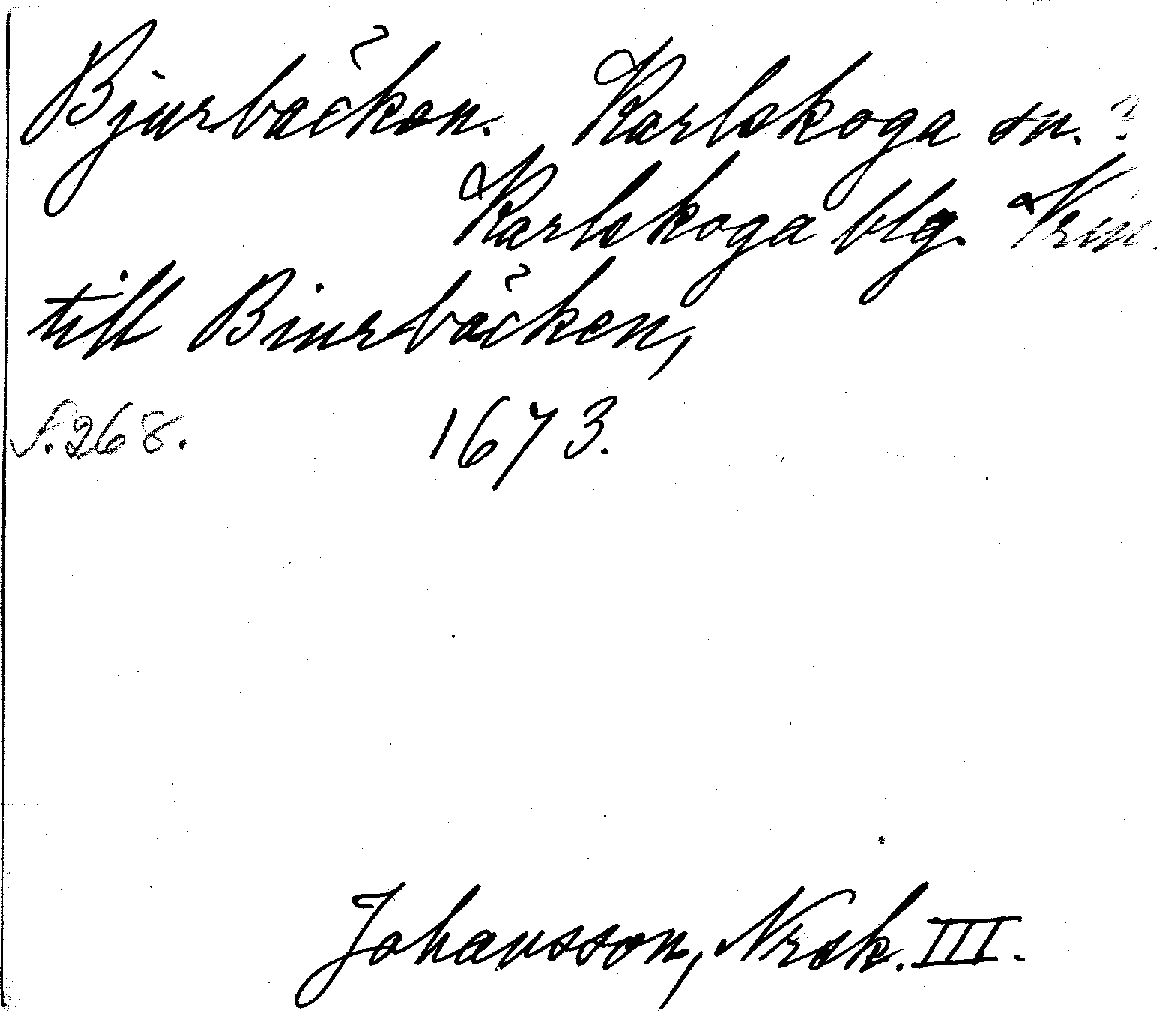 Bjurbäcken. Karlskoga sn. ?
Karlskoga blg. Vrm.
till Biurbäcken,
S. 268. 1673.
Johansson, Nrsk. III.